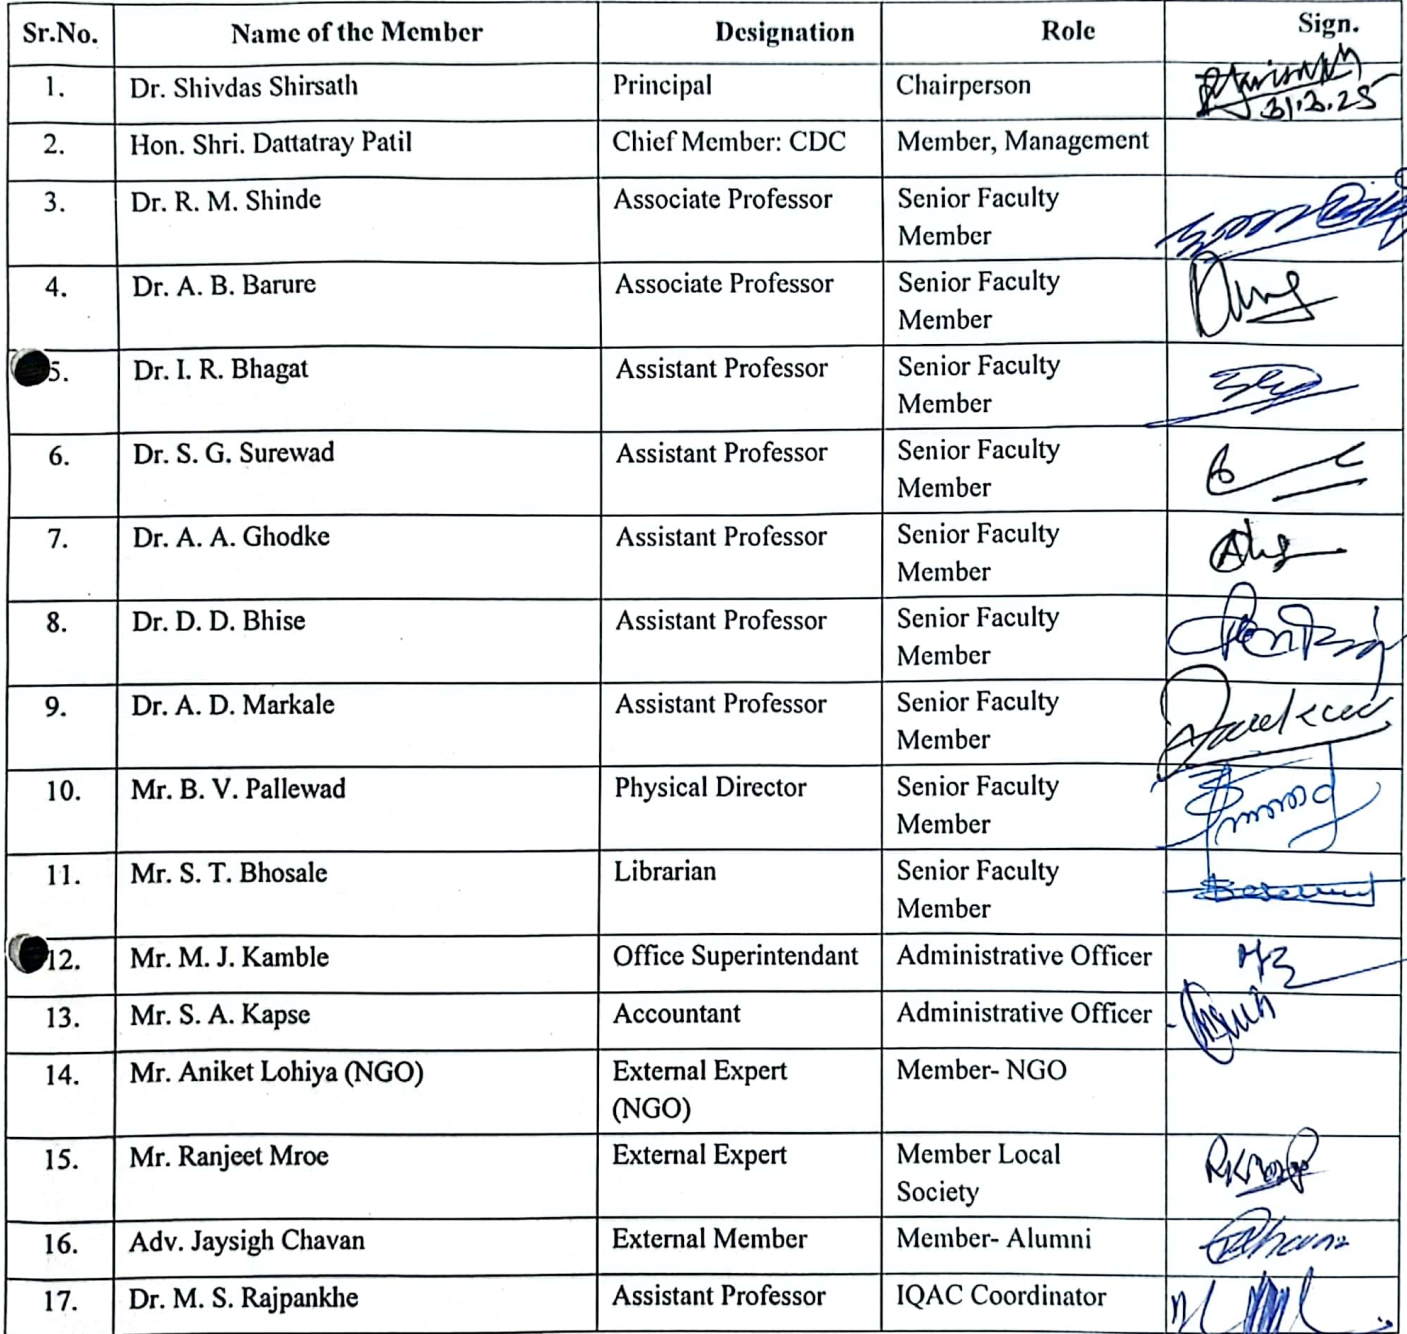 Sr.No. Name of the Member Designation Role Sign.
1. Dr. Shivdas Shirsath Principal Chairperson
31.3.25
2. Hon. Shri. Dattatray Patil Chief Member: CDC Member, Management
3. Dr. R. M. Shinde Associate Professor Senior Faculty
Member
4. Dr. A. B. Barure Associate Professor Senior Faculty
Member
5. Dr. I. R. Bhagat Assistant Professor Senior Faculty
Member
6. Dr. S. G. Surewad Assistant Professor Senior Faculty
Member
7. Dr. A. A. Ghodke Assistant Professor Senior Faculty
Member
8. Dr. D. D. Bhise Assistant Professor Senior Faculty
Member
9. Dr. A. D. Markale Assistant Professor Senior Faculty
Member
10. Mr. B. V. Pallewad Physical Director Senior Faculty
Member
11. Mr. S. T. Bhosale Librarian Senior Faculty
Member
12. Mr. M. J. Kamble Office Superintendant Administrative Officer
13. Mr. S. A. Kapse Accountant Administrative Officer
14. Mr. Aniket Lohiya (NGO) External Expert Member- NGO
(NGO)
15. Mr. Ranjeet Mroe External Expert Member Local
Society
16. Adv. Jaysigh Chavan External Member Member- Alumni
17. Dr. M. S. Rajpankhe Assistant Professor IQAC Coordinator